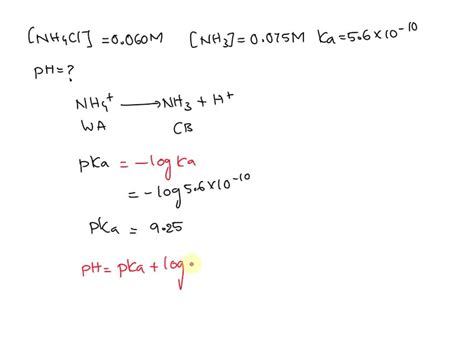 [NH4Cl] = 0.060M [NH3] = 0.075M Ka = 5.6 × 10^-10
pH = ?
NH4+ ⟶ NH3 + H+
WA CB
pKa = -log Ka
= -log 5.6 × 10^-10
PKa = 9.25
PH = pKa + log